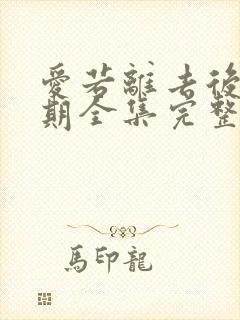 愛若離去後
期全集完整
馬印龍